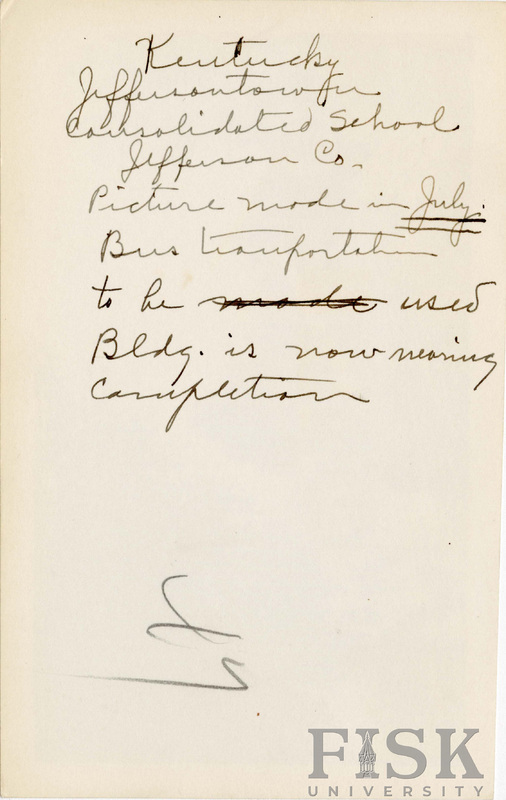 Kentucky
Jeffersontown
Consolidated School
Jefferson Co.
Picture made in July.
Bus transportation
to be made used
Bldg. is now nearing
completion
FISK
UNIVERSITY